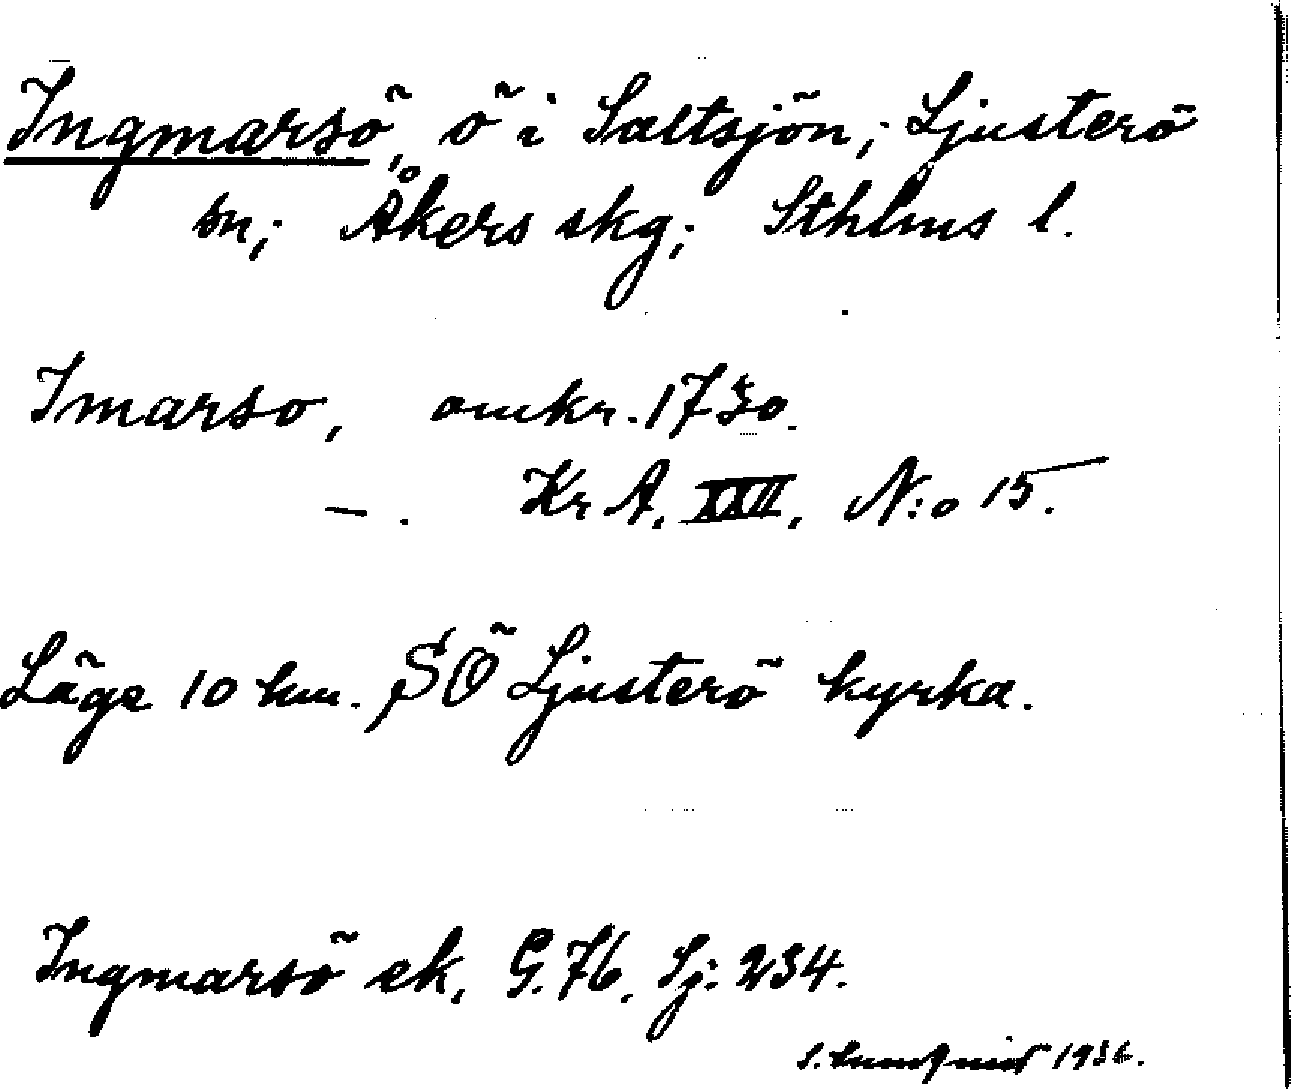 Ingmarsö, ö i Saltsjön; Ljusterö
sn; Åkers skg; Sthlms l.
Imarso, omkr. 1730.
—. Kr A. XXII. N:o 15.
Läge 10 km. SÖ Ljusterö kyrka.
Ingmarsö ek. G. 76. Sj: 234.
S. 1936.